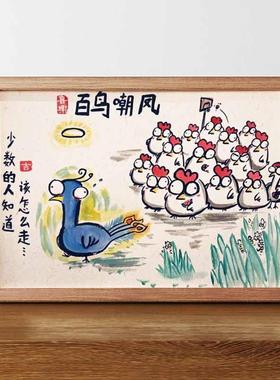 百鸟嘲凤
少数的人知道
吉
该怎么走...